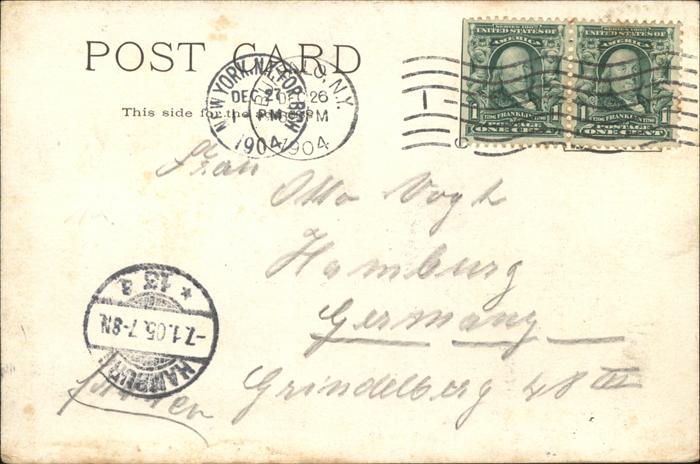 POST CARD
This side for the address
NEW YORK, N.Y. FOR. BCH
DEC 27
PM
1904
BUFFALO, N.Y.
DEC 26
PM
1904
1
SERIES 1902
UNITED STATES OF
AMERICA
1706 FRANKLIN 1790
POSTAGE
ONE CENT
SERIES 1902
UNITED STATES OF
AMERICA
1706 FRANKLIN 1790
POSTAGE
ONE CENT
Frau
Otto Vogt
Hamburg
Germany
Grindelberg 48 III
HAMBURG
-7.1.05.7-8N.
* 13 a